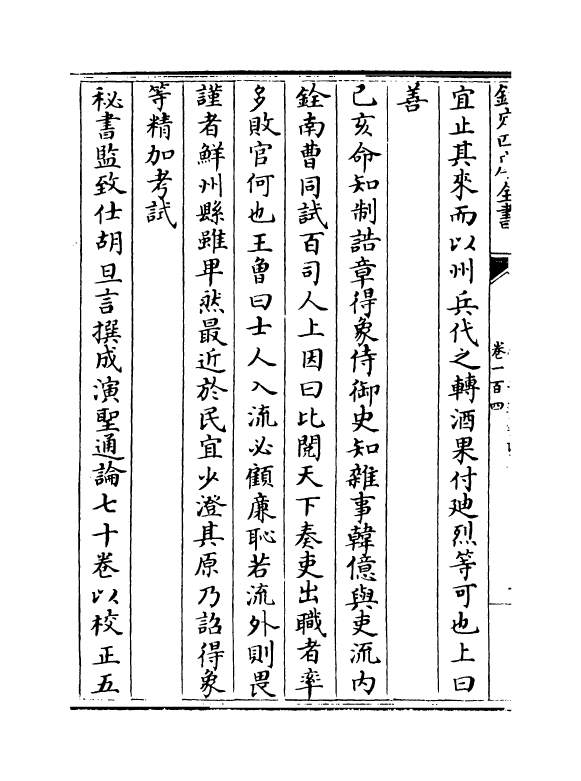 欽定四庫全書
卷一百四
宜止其來而以州兵代之轉酒果付廸烈等可也上曰
善
己亥命知制誥章得象侍御史知雜事韓億與吏流内
銓南曹同試百司人上因曰比閱天下奏吏出職者率
多敗官何也王曾曰士人入流必顧廉恥若流外則畏
謹者鮮州縣雖卑然最近於民宜少澄其原乃詔得象
等精加考試
秘書監致仕胡旦言撰成演聖通論七十卷以校正五